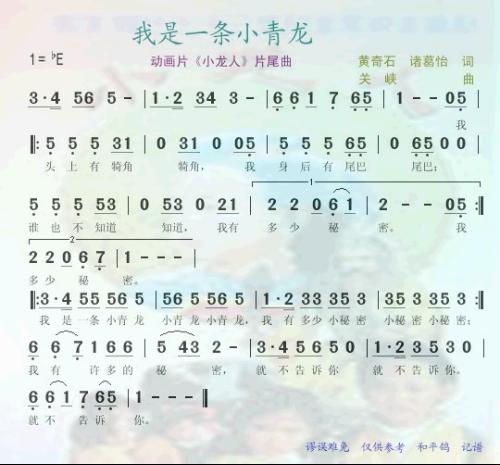 我是一条小青龙
1= ♭E
动画片《小龙人》片尾曲
黄奇石 诸葛怡 词
关 峡 曲
3·4 56 5 - | 1·2 34 3 - | 661 7 65 | 1 - - 05 |
我
|: 5 5 5 31 | 0 31 0 05 | 5 5 5 65 | 0 65 0 0 |
头上有犄角 犄角, 我 身后有尾巴 尾巴;
1
5 5 5 53 | 0 53 0 21 | 2 2 0 61 | 2 - - 05 :|
谁也不知道 知道, 我有 多少秘 密。 我
2
2 2 0 6 7 | 1 - - - |
多少秘 密。
|: 3·4 55 56 5 | 56 5 56 5 | 1·2 33 35 3 | 35 3 35 3 :|
我 是一条小青龙 小青龙小青龙, 我有多少小秘密 小秘密小秘密;
6 6 7 1 | 5 43 2 - | 3·4 56 50 | 1·2 35 30 |
我有 许多的 秘 密, 就不告诉你 就不告诉你,
6 6 1 7 65 | 1 - - - ‖
就不 告诉 你。
谬误难免 仅供参考 和平鸽 记谱